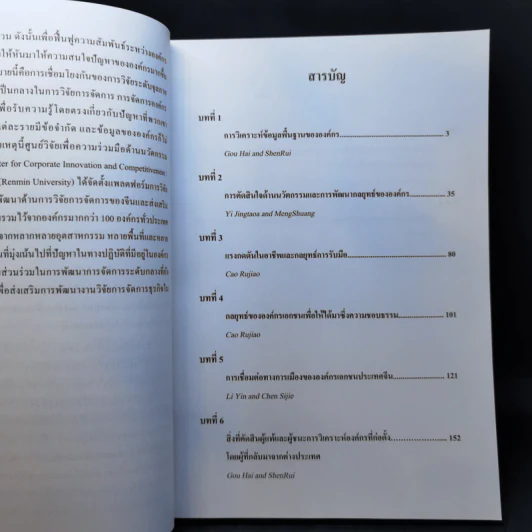 วน ดังนั้นเพื่อฟื้นฟูความสัมพันธ์ระหว่างองค์กร
ให้หันมาให้ความสนใจปัญหาขององค์กรมากขึ้น
มายนี้คือการเชื่อมโยงกันของการวิจัยระดับจุลภาค
เป็นกลางในการวิจัยการจัดการ การจัดการองค์กร
พื่อรับความรู้โดยตรงเกี่ยวกับปัญหาที่พวกเขา
แต่ละรายมีข้อจำกัด และข้อมูลขององค์กรก็ไม่
เหตุนี้ศูนย์วิจัยเพื่อความร่วมมือด้านนวัตกรรม
ter for Corporate Innovation and Competitiveness
(Renmin University) ได้จัดตั้งแพลตฟอร์มการวิจัย
พัฒนาด้านการวิจัยการจัดการของจีนและส่งเสริม
รวมไว้จากองค์กรมากกว่า 100 องค์กรทั่วประเทศ
จากหลากหลายอุตสาหกรรม หลายพื้นที่และหลาย
นที่มุ่งเน้นไปที่ปัญหาในทางปฏิบัติที่มีอยู่ในองค์กร
ส่วนร่วมในการพัฒนาการจัดการระดับกลางที่กำ
พื่อส่งเสริมการพัฒนางานวิจัยการจัดการธุรกิจใน
สารบัญ
บทที่ 1
การวิเคราะห์ข้อมูลพื้นฐานขององค์กร.......... 3
Gou Hai and ShenRui
บทที่ 2
การตัดสินใจด้านนวัตกรรมและการพัฒนากลยุทธ์ขององค์กร.......... 35
Yi Jingtaoa and MengShuang
บทที่ 3
แรงกดดันในอาชีพและกลยุทธ์การรับมือ.......... 80
Cao Rujiao
บทที่ 4
กลยุทธ์ขององค์กรเอกชนเพื่อให้ได้มาซึ่งความชอบธรรม.......... 101
Cao Rujiao
บทที่ 5
การเชื่อมต่อทางการเมืองขององค์กรเอกชนประเทศจีน.......... 121
Li Yin and Chen Sijie
บทที่ 6
สิ่งที่ตัดสินผู้แพ้และผู้ชนะการวิเคราะห์องค์กรที่ก่อตั้ง.......... 152
โดยผู้ที่กลับมาจากต่างประเทศ
Gou Hai and ShenRui